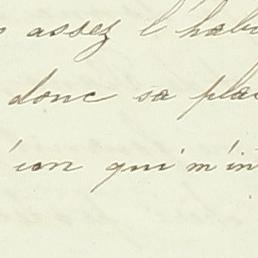 assez l'hab
donc sa pla
ion qui m'in